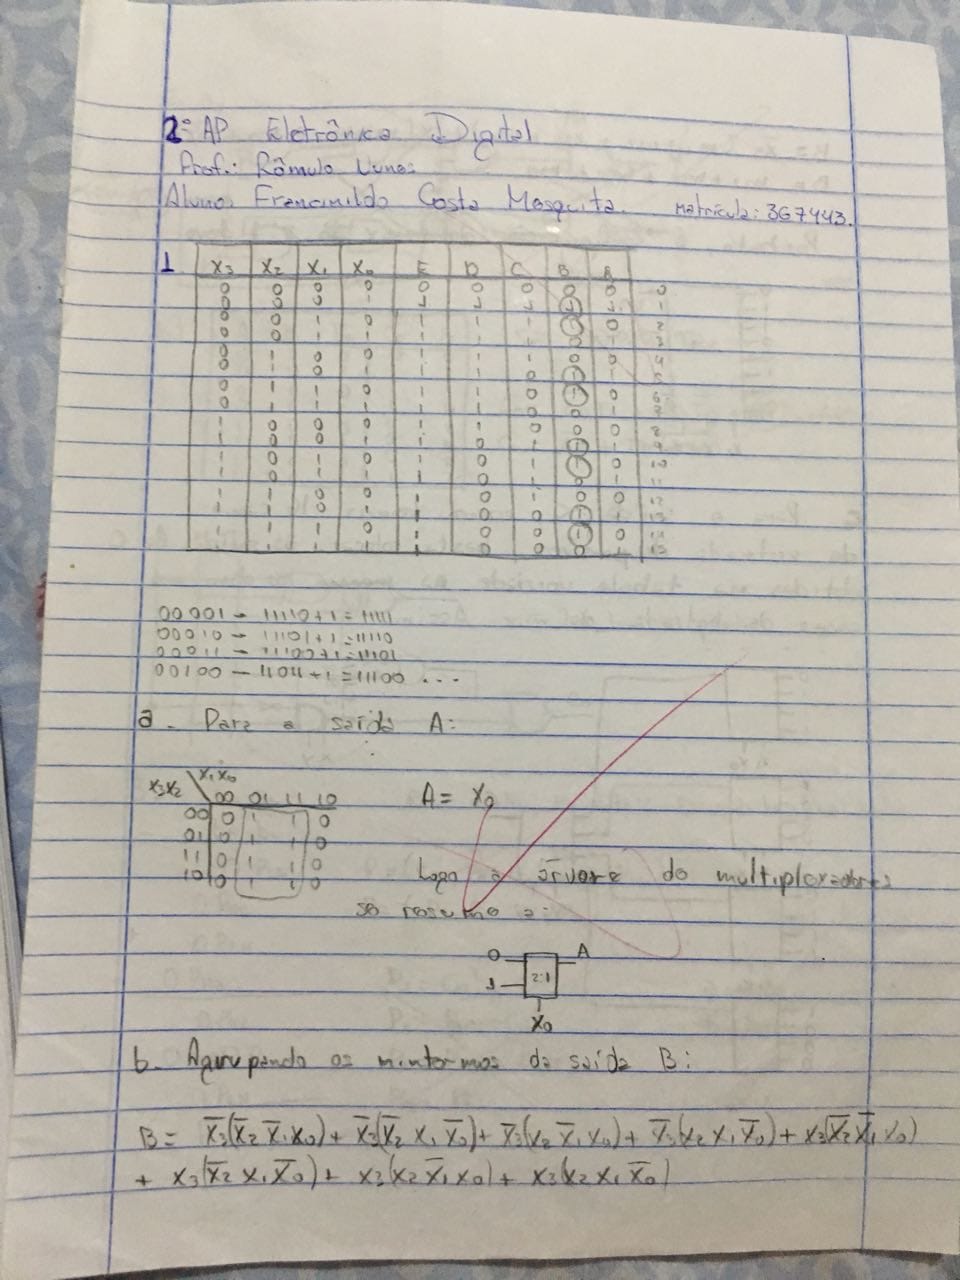 2ª AP Eletrônica Digital
Prof.: Rômulo Nunes
Aluno: Francinildo Costa Mesquita. Matrícula: 367443.
1 X3 X2 X1 X0 E D C B A
0 0 0 0 0 0 0 0 0 0
0 0 0 1 1 1 1 1 1 1
0 0 1 0 1 1 1 1 0 2
0 0 1 1 1 1 1 0 1 3
0 1 0 0 1 1 1 0 0 4
0 1 0 1 1 1 0 1 1 5
0 1 1 0 1 1 0 1 0 6
0 1 1 1 1 1 0 0 1 7
1 0 0 0 1 1 0 0 0 8
1 0 0 1 1 0 1 1 1 9
1 0 1 0 1 0 1 1 0 10
1 0 1 1 1 0 1 0 1 11
1 1 0 0 1 0 1 0 0 12
1 1 0 1 1 0 0 1 1 13
1 1 1 0 1 0 0 1 0 14
1 1 1 1 1 0 0 0 1 15
00001 - 11110+1=11111
00010 - 11101+1=11110
00011 - 11100+1=11101
00100 - 11011+1=11100 ...
a. Para a saída A:
X3X2 X1X0
00 01 11 10
00 0 1 1 0
01 0 1 1 0
11 0 1 1 0
10 0 1 1 0
A= X0
Logo a árvore de multiplexadores
se resume a:
0 A
1 2:1
X0
b. Agrupando os mintermos da saída B:
B= X̄3(X̄2 X̄1X0)+ X̄3(X̄2 X1 X̄0)+ X̄3(X2 X̄1 X0)+ X̄3(X2 X1 X̄0)+ X3(X̄2 X̄1 X0)
+ X3(X̄2 X1 X̄0)+ X3(X2 X̄1 X0)+ X3(X2 X1 X̄0)